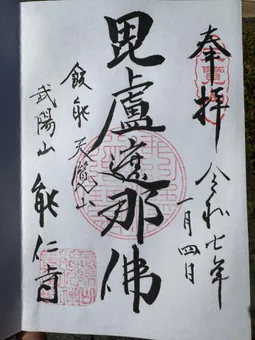 奉拝
令和七年
一月四日
毘盧遮那佛
飯能天覽山
武陽山
能仁寺